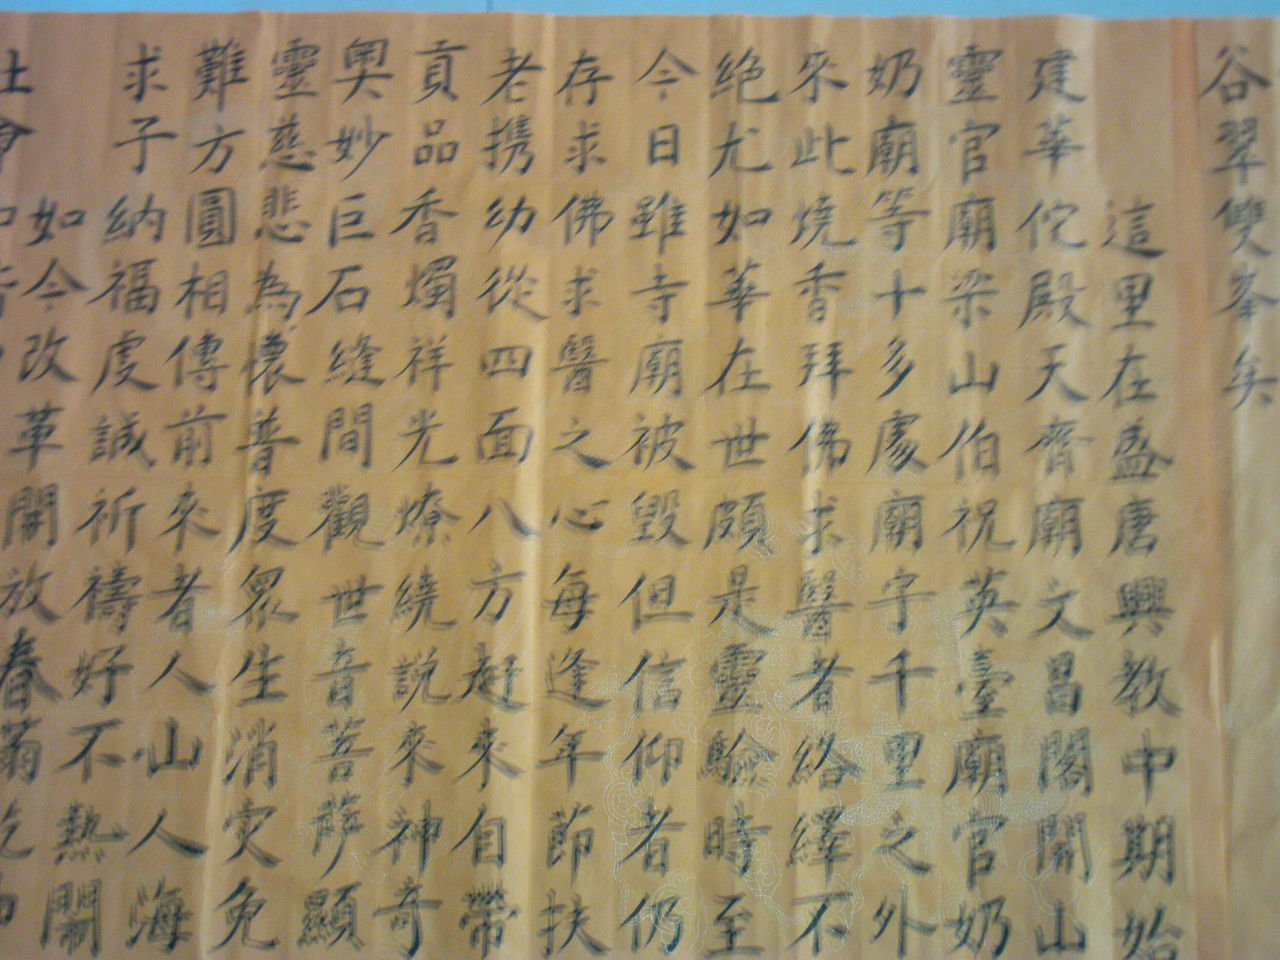 谷翠雙峯矣
這里在盛唐興教中期始
建華佗殿天齊廟文昌閣開山
靈官廟梁山伯祝英臺廟官奶
奶廟等十多處廟宇千里之外
來此燒香拜佛求醫者絡繹不
絕尤如華在世頗是靈驗時至
今日雖寺廟被毀但信仰者仍
存求佛求醫之心每逢年節扶
老携幼從四面八方赶來自帶
貢品香燭祥光燎繞說來神奇
奧妙巨石縫間觀世音菩薩顯
靈慈悲為懷普度眾生消灾免
難方圓相傳前來者人山人海
求子納福虔誠祈禱好不熱鬧
如今改革開放春